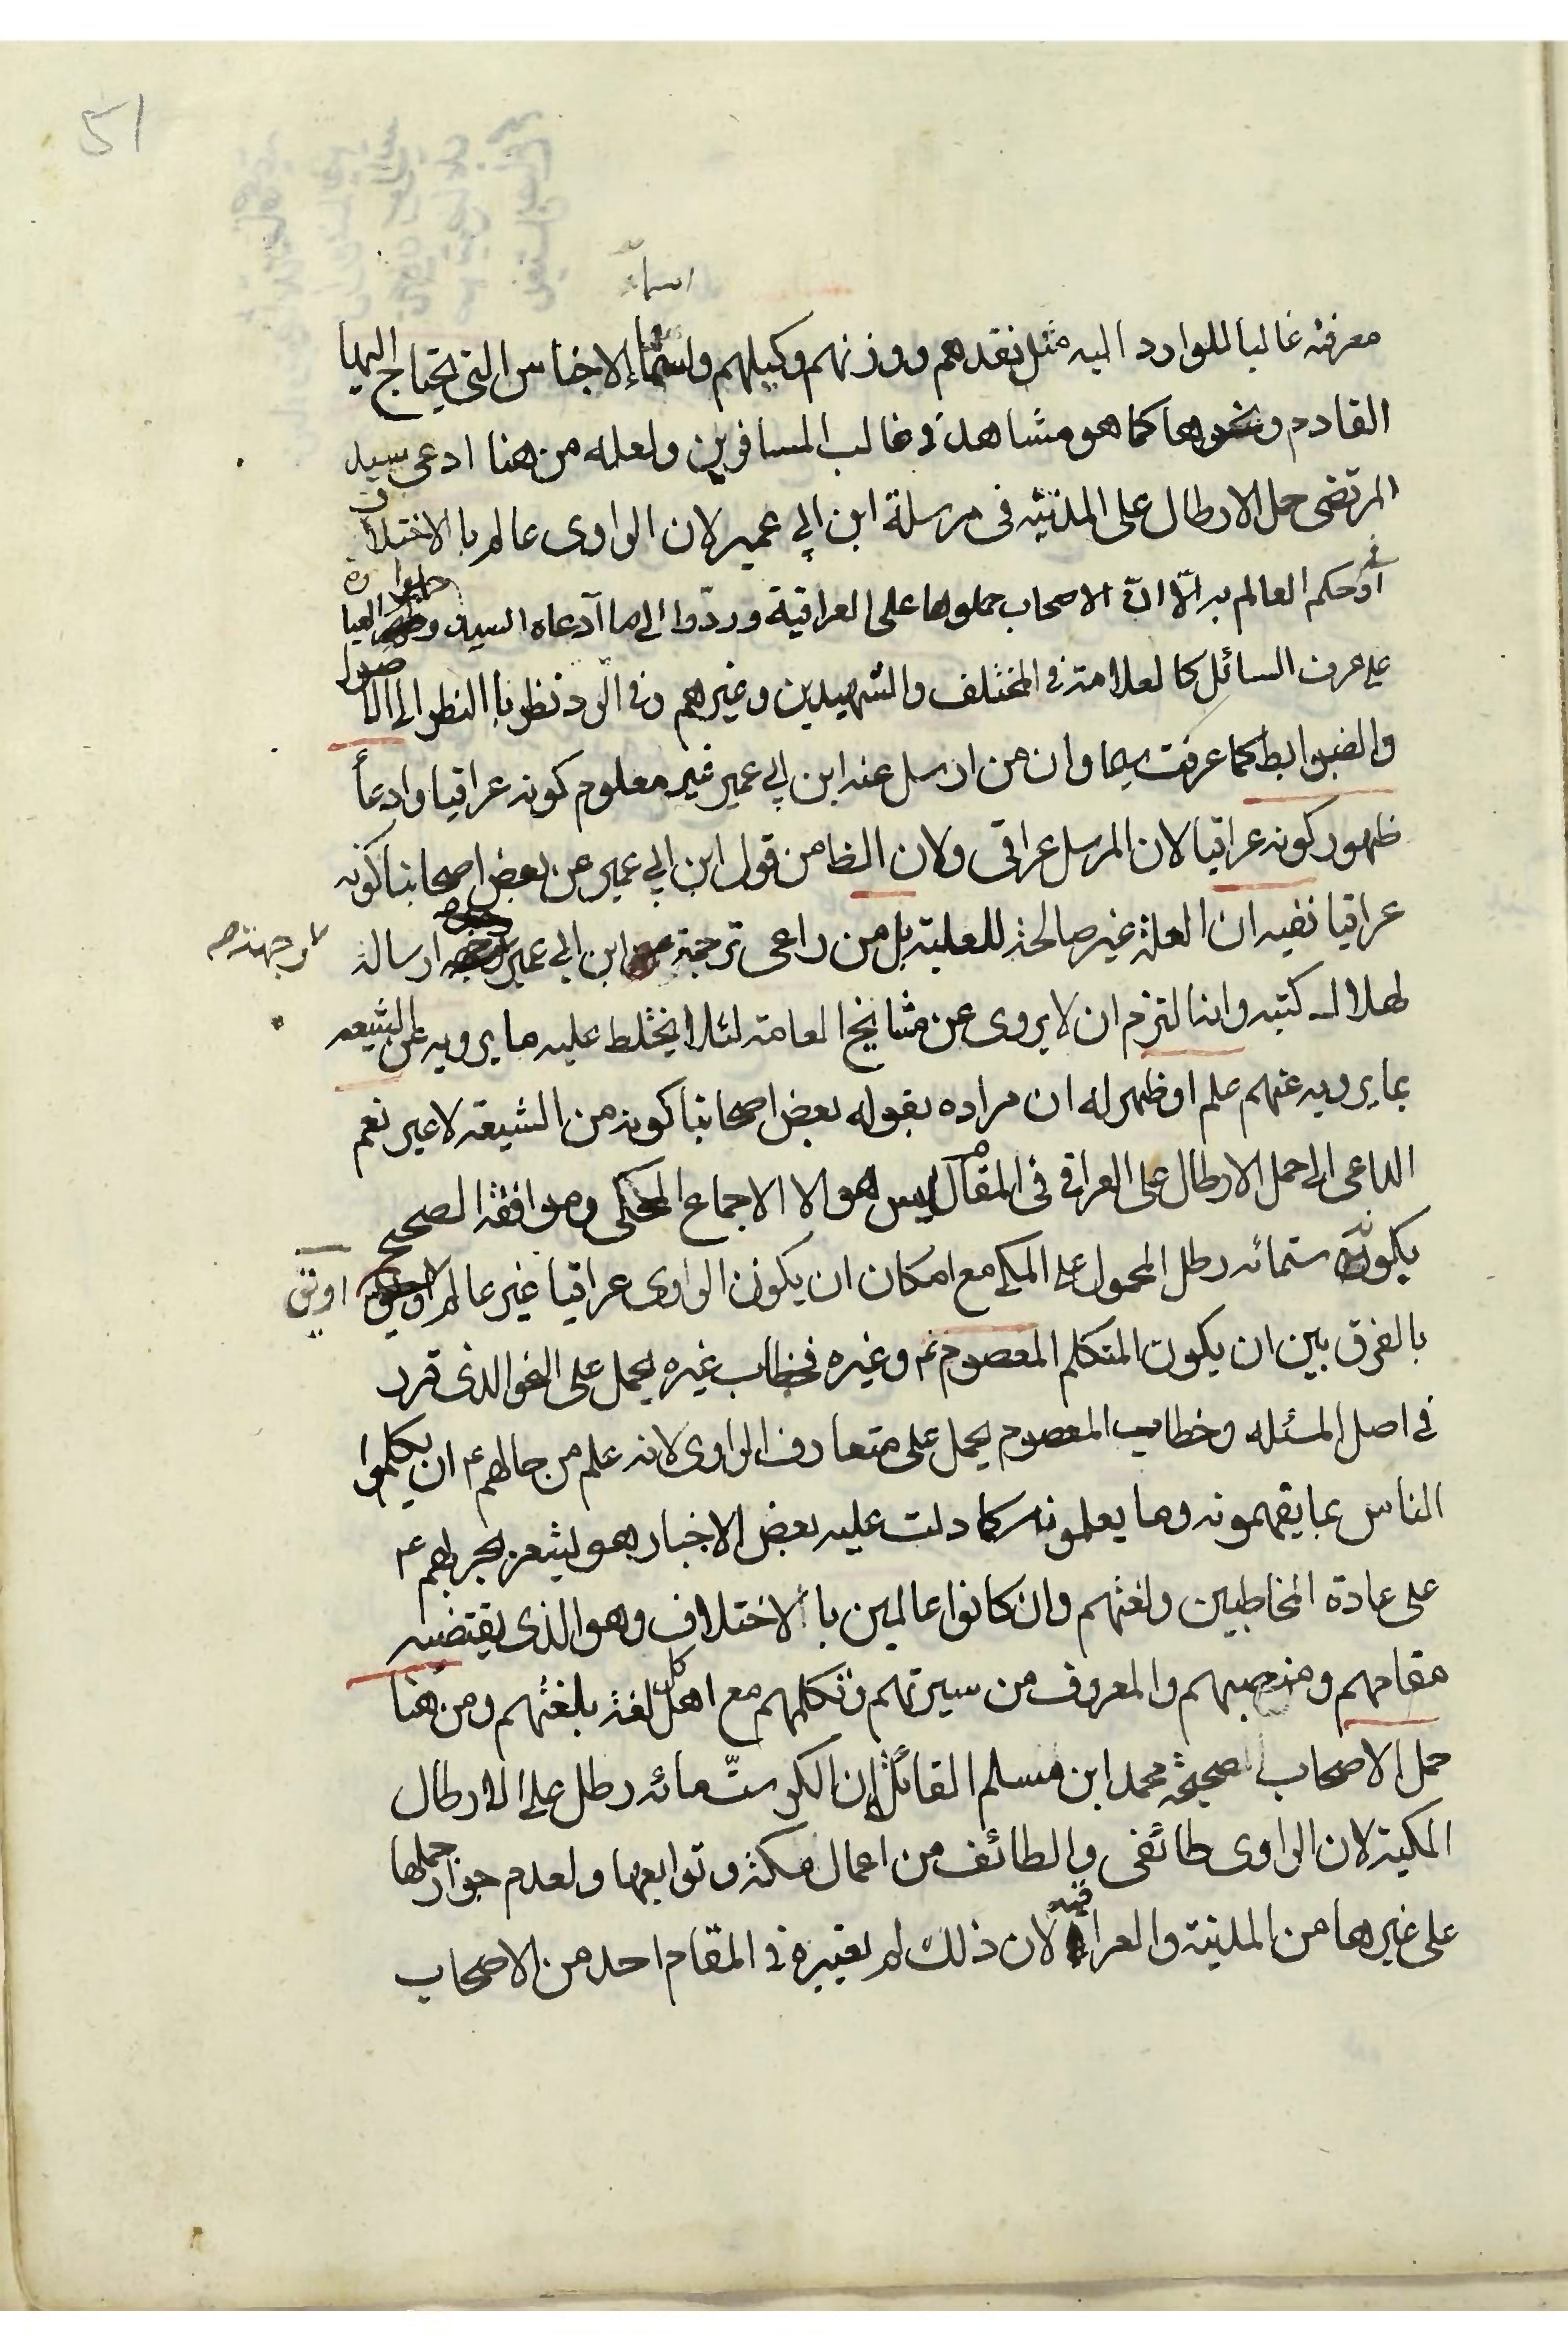 51
اسماء
معرفته غالبا للوارد اليه مثل نقدهم ووزنهم وكيلهم واسماء الاجناس التى يحتاج اليها
القادم ونحوها كما هو مشاهد فى غالب المسافرين ولعله من هنا ادعى سيد
المرتضى حمل الارطال على المدنيه فى مرسلة ابن ابى عمير لان الراوى عالم با الاختلاف
او فى حكم العالم به الّا انّ الاصحاب حملوها على العراقية وردّوا الى ما آدعاه السيد و حملوا العبارة
على عرف السائل كالعلامة فى المختلف والشهيدين وغيرهم وفى الّرد نظر با النظر الى الاصول
والضوابط كما عرفت سيما وان من ارسل عنه ابن ابى عمير غير معلوم كونه عراقيا وادعاً
ظهور كونه عراقيا لان المرسل عراقى ولان الظا من قول ابن ابى عمير عن بعض اصحابنا كونه
عراقيا نفيه ان العلة غير صالحة للعلية بل من راعى ترجمة ابن ابى عمير وجهة ارسالة
لهلاك كتبه وانه التزم ان لا يروى عن مشايخ العامة لئلا يختلط عليه ما يرويه عن الشيعه
بما يرويه عنهم علم او ظهر له ان مراده بقوله بعض اصحابنا كونه من الشيعة لا غير نعم
الداعى الى حمل الارطال على العراقى فى المقام ليس هو الا الاجماع المحكى وموافقة الصحيح
بكونه ستمائه رطل المحمول على المكى مع امكان ان يكون الراوى عراقيا غير عالم اونق
بالفرق بين ان يكون المتكلم المعصوم ع وغيره فخطاب غيره يحمل على النحو الذى قرر
فى اصل المسئله وخطاب المعصوم يحمل على متعارف الراوى لانه علم من حالهم ع ان يكلموا
الناس بما يفهمونه وما يعلمونه كما دلت عليه بعض الاخبار هو يشعر بجريهم ع
على عادة المخاطبين ولغتهم وان كانوا عالمين با الاختلاف وهو الذى يقتضيه
مقامهم ومنصبهم والمعروف من سيرتهم وتكلمهم مع اهل كل لغة بلغتهم ومن هنا
حمل الاصحاب صحيحة محمد ابن مسلم القائلة ان الكر ستّ مائه رطل على الارطال
المكية لان الراوى طائفى والطائف من اعمال مكة وتوابعها ولعدم جواز حملها
على غيرها من المدنية والعراقيه لان ذلك لم يعتبره فى المقام احد من الاصحاب